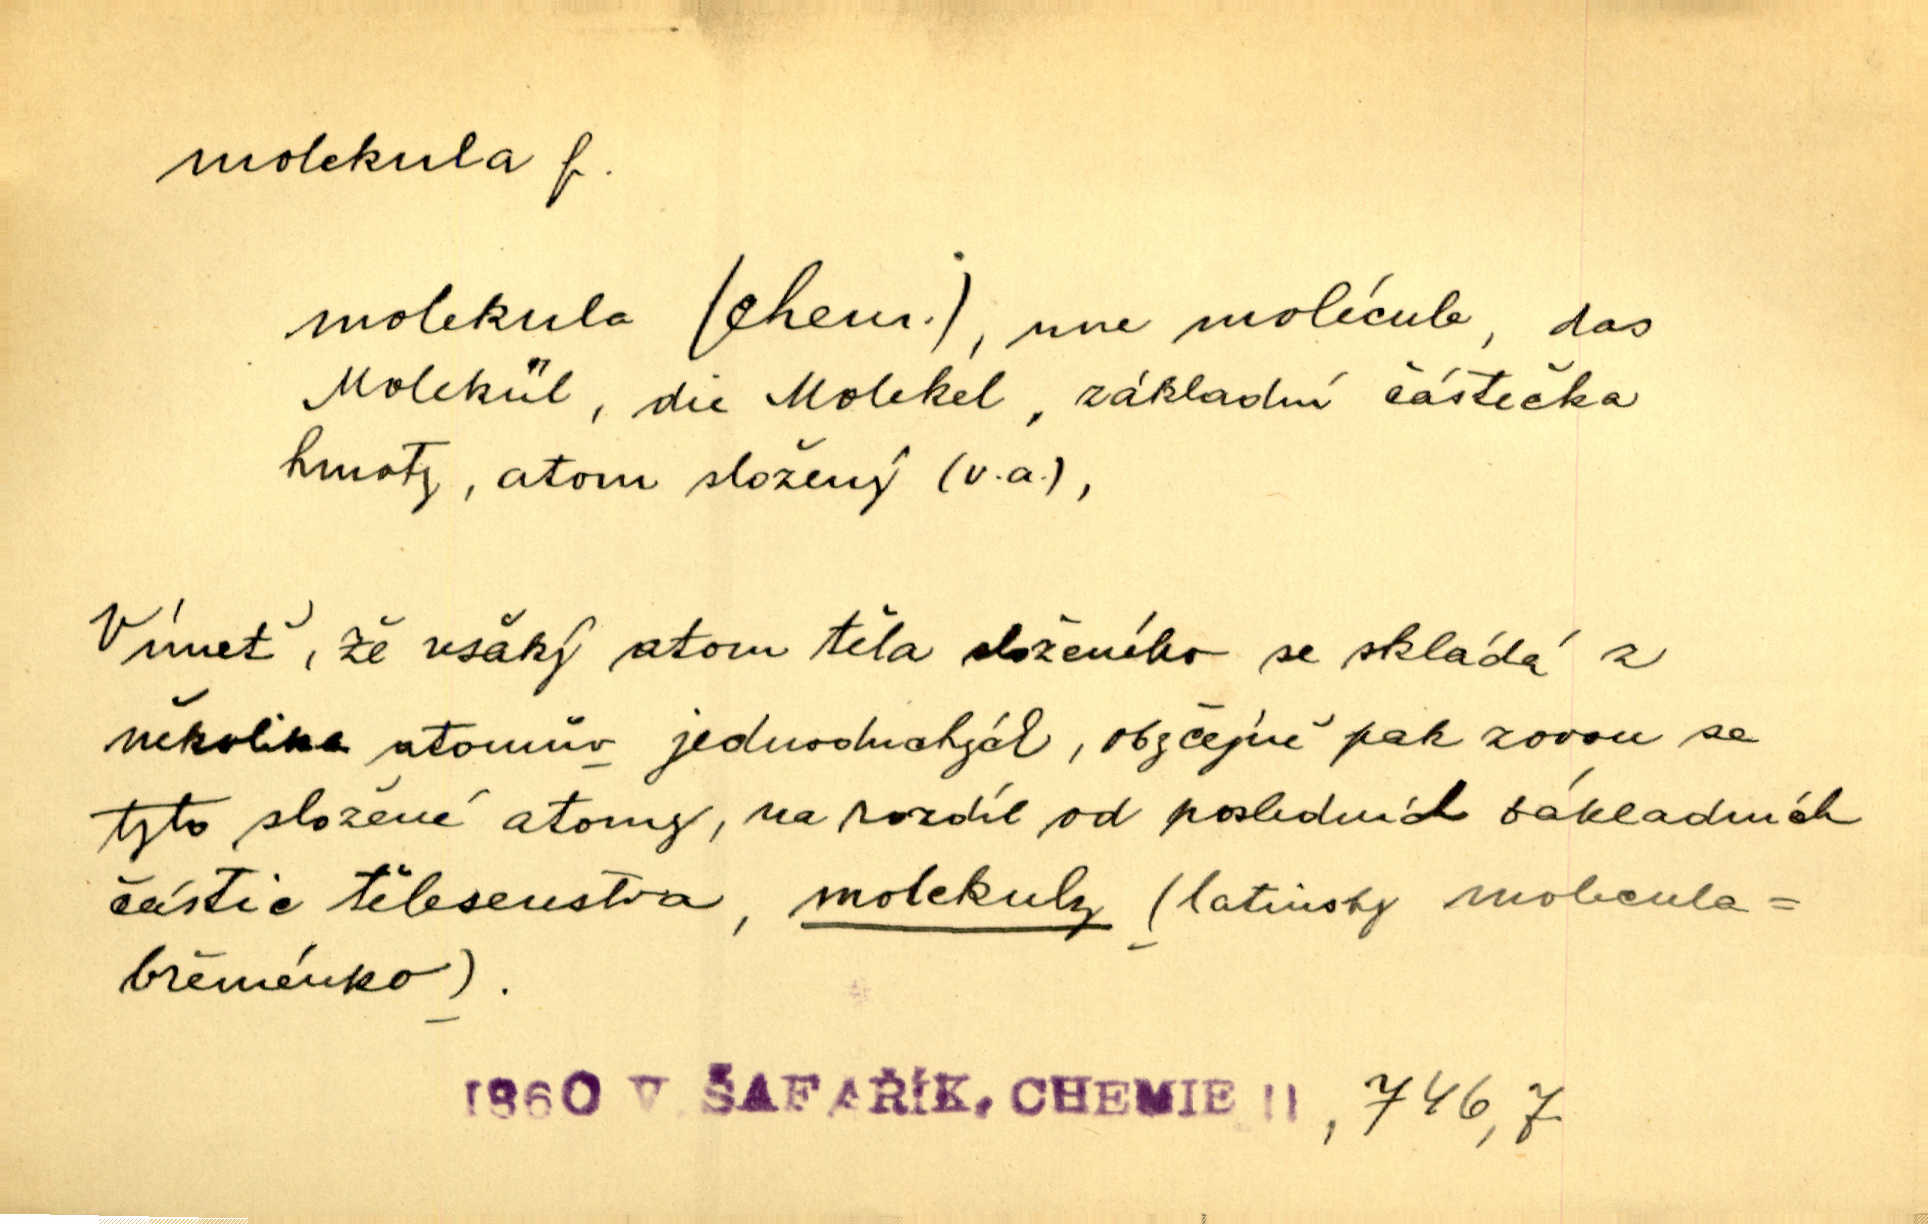 molekula f.
molekula (chem.), une molécule, das
Molekül, die Molekel, základní částečka
hmoty, atom složený (v.a.),
Vímeť, že všaký atom těla složeného se skládá z
několika atomův jednoduchých, obyčejně pak zovou se
tyto složené atomy, na rozdíl od posledních základních
částic tělesenstva, molekuly (latinsky molecula =
břeménko).
1860 V. ŠAFAŘÍK, CHEMIE II, 746,7